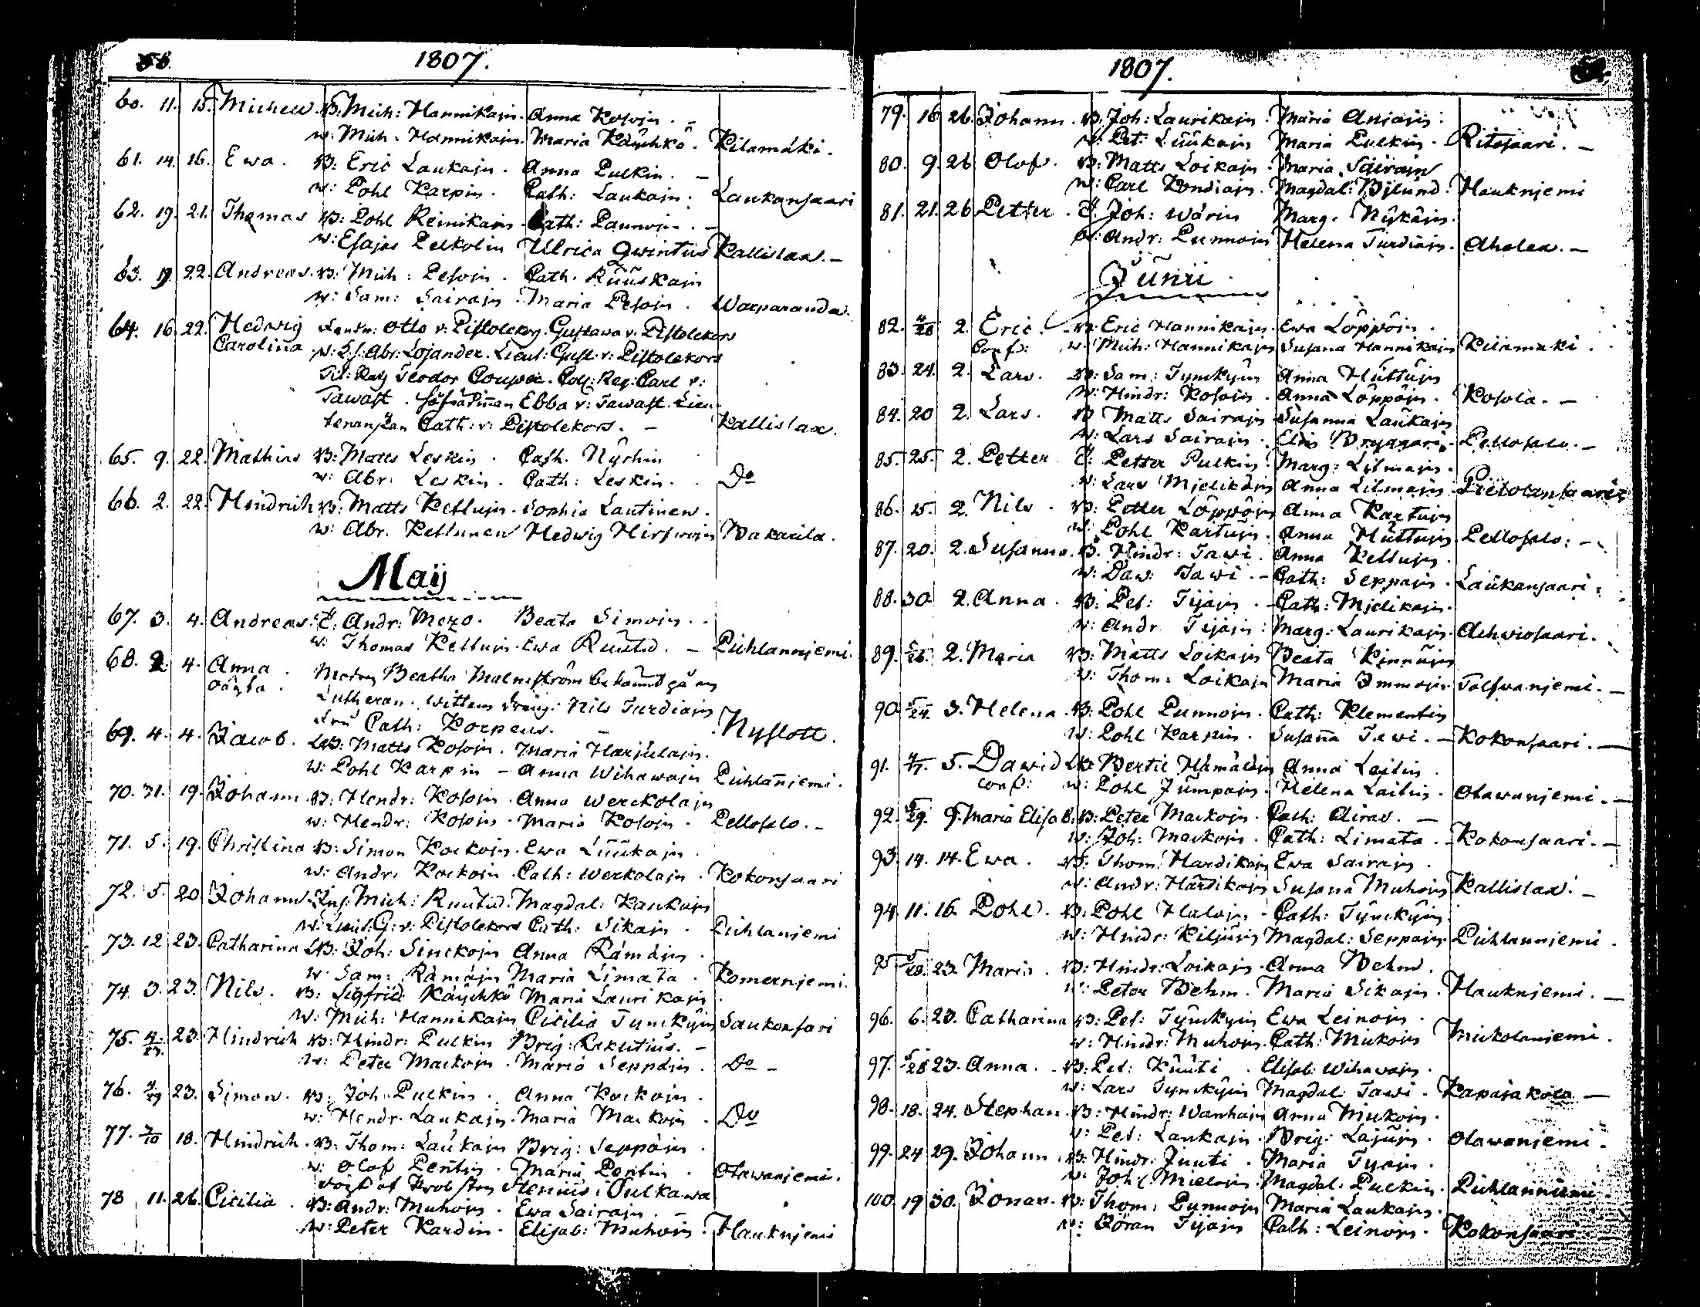 58.
1807.
60. 11. 15. Michell. B. Mich: Hannikain. Anna Kosoin.
w: Mich. Hannikain. Maria Käyhkö. Kilamäki.
61. 14. 16. Ewa. B: Eric Laukain. Anna Pulkin.
w: Pohl Karpin. Cath: Laukain. Laukansaari
62. 19. 21. Thomas B: Pohl Reinikain. Cath: Paunoin.
w: Esajas Pelkolin Ulrica Qwintus Kallislax.
63. 9. 22. Andreas. B: Mich: Pesoin. Cath. Rüüskain
w: Sam: Sairain. Maria Pesoin. Warparanda.
64. 16. 22. Hedwig Otto v: Pistolekors. Gustava v: Pistolekors
Carolina Abr: Lojander. Lieut: Gust. v: Pistolekors
Teodor Carl v:
Tawast. Ebba v: Tawast. Lieu-
tenanskan Cath: v: Pistolekors. Kallislax.
65. 9. 22. Mathias B: Matts Leskin. Cath. Nyrhin
w: Abr: Leskin. Cath: Leskin. Do
66. 2. 22. Hindrich B: Matts Kettuin. Sophia Lautinen.
w: Abr. Kettunen Hedwig Hirswoin Wakarila.
Maij
67. 3. 4. Andreas. Andr: Mezo. Beata Simoin.
w: Thomas Kettuin. Ewa Ruutid. Pihlanniemi.
68. 2 4. Anna Beatha Malmström
oäyta. Lutheran. Nils Turdiain
Cath: Korpens. Nyslott.
69. 4. 4. Jacob. B: Matts Kosoin. Maria Harjulain.
w: Pohl Karpin Anna Wihawain Pihlaniemi.
70. 31. 19. Johann B: Hendr: Kosoin. Anna Werckolain
w: Hendr: Kosoin. Maria Kosoin. Pellosalo.
71. 5. 19. Christina B: Simon Kockoin. Ewa Lüükain.
w: Andr: Kockoin. Cath: Werkolain. Kokonsaari
72. 5. 20. Johann Mich: Ruutid. Magdal: Kaukoin
w: Lieut. G: v: Pistolekors Cath: Sikain. Pihlaniemi
73. 12 23. Catharina B: Joh: Sinckoin Anna Rämäin.
w. Sam: Rämäin Maria Limata. Komerniemi.
74. 3. 23. Nils. B: Sigfrid Käyhkö Maria Laurikain
w: Mich: Hannikain Cicilia Tynckyin Saukonsari
75. 23. Hindrich B: Hindr: Pulkin Brig: Reletius.
w: Peter Mackoin. Maria Seppäin. Do
76. 23. Simon. B: Joh: Pulkin. Anna Kockoin.
w: Hendr: Laukain. Maria Mackoin. Do
77. 18. Hindrich. B: Thom: Laukain Brig: Seppäin.
w: Olof Pentin. Maria Pentin. Otawaniemi.
Stenius i Sulkawa
78 11. 26. Cicilia. B: Andr: Muhoin. Ewa Sairain.
w: Peter Kardin. Elisab: Muhoin. Haukniemi
1807.
79. 16 26. Johann. B: Joh: Laurikain. Maria Asiain.
w. Pet: Lüükain Maria Pulkin. Ritosaari.
80. 9 26 Olof. B: Matts Loikain. Maria Sairain
w: Carl Kondiain. Magdal: Bjlund. Haukniemi
81. 21. 26 Petter. Joh: Wärin Marg. Nykäin.
w: Andr: Punnoin Helena Turdiain. Ahola.
Junii
82. 4/28 2. Eric. B: Eric Hannikain Ewa Löppöin.
Conf: w: Mich: Hannikain Susana Hannikain Kilamäki.
83. 24. 2. Lars. B: Sam: Tynckyin Anna Hüttüin
w: Hindr: Kosoin. Anna Löppöin. Kosola.
84. 20 2. Lars. B: Matts Sairain Susanna Laukain
w: Lars Sairain. Pellosalo.
85. 25 2. Petter. Petter Pulkin. Marg: Litmain.
w: Lars Mielikäin Anna Litmain.
86. 15. 2. Nils. B: Petter Löppöin Anna Kartuin
w: Pohl Kartuin. Anna Hüttuin. Pellosalo.
87. 20. 2. Susanna. B. Hindr: Tawi. Anna Kettuin.
w: Daw: Tawi. Cath: Seppäin. Laukansaari.
88. 30 2. Anna. B: Pet: Tijain. Cath: Mielikain.
w: Andr. Tijain. Marg: Laurikain. Achwiosaari.
89. 2. Maria B: Matts Loikain Beata Kinnüin
w: Thom: Loikain Maria Immoin. Tolswaniemi.
90. 5/24. 3. Helena. B: Pohl Punnoin. Cath: Klementin
w: Pohl Karpin. Susana Tawi. Kokonsaari.
91. 5. Dawid B: Bertil Hämäläin Anna Laitin.
conf: w: Pohl Jumpain. Helena Laitin. Otawaniemi.
92. 9. Maria Elisab. B: Peter Mackoin. Cath: Airas.
w: Joh: Mackoin. Cath: Limata. Kokonsaari.
93. 14. 14. Ewa. B: Thom: Hardikain Ewa Sairain.
w: Andr: Hardikain Susana Muhoin Kallislax.
94. 11. 16. Pohl. B: Pohl Haloin. Cath: Tynckyin.
w: Hindr: Kiljuin Magdal: Seppäin Pihlanniemi.
95 23. Maria. B: Hindr: Loikain. Anna Behm.
w: Peter Behm. Maria Sikain. Haukniemi.
96. 6. 23. Catharina B: Pet: Tynckyin Ewa Leinoin.
w: Hindr: Muhoin. Cath: Mukoin Mickolaniemi.
97. 5/28 23. Anna. B: Pet: Küüti. Elisab: Wihawain.
w: Lars Tynckyin Magdal: Tawi. Kapajakola
98. 18. 24. Stephan. B: Hindr: Wanhain Anna Muckoin.
w: Pet: Laukain. Brig: Lajuin. Otawaniemi.
99. 24 29. Johann. B: Hindr: Juuti. Maria Tijain.
w: Joh: Mieloin. Magdal: Pulkin. Pihlanniemi.
100. 19 30. Jonas. B: Thom: Punnoin Maria Laukain.
w: Göran Tijain Cath: Leinoin. Kokonsaari